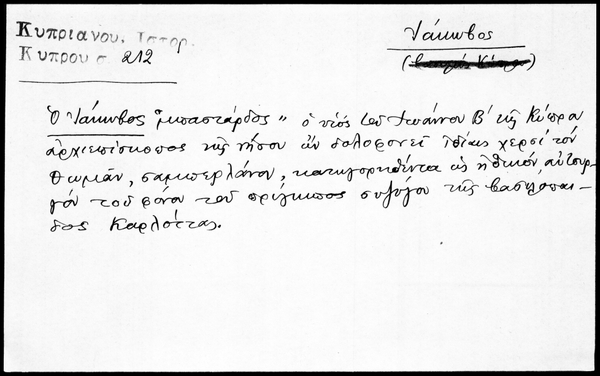 Κυπριανου, Ιστορ.
Κυπρου σ. 212
Ἰάκωβος
Ὁ Ἰάκωβος "μπαστάρδος" ὁ υἱός τοῦ Ἰωάννου Β´ τῆς Κύπρου
ἀρχιεπίσκοπος τῆς νήσου ὤν δολοφονεῖ ἰδίαις χερσί τόν
Θωμᾶν, σαμπερλάνον, κατηγορηθέντα ὡς ἠθικόν αὐτουρ-
γόν τοῦ φόνου τοῦ πρίγκιπος συζύγου τῆς βασιλόπαι-
δος Καρλόττας.